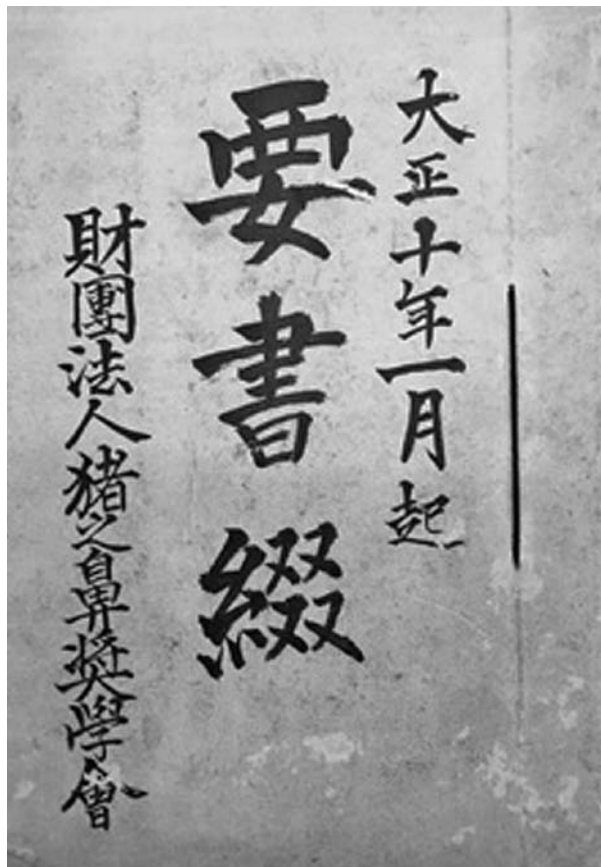 大正十年一月起
要書綴
財團法人猪之鼻奨學會